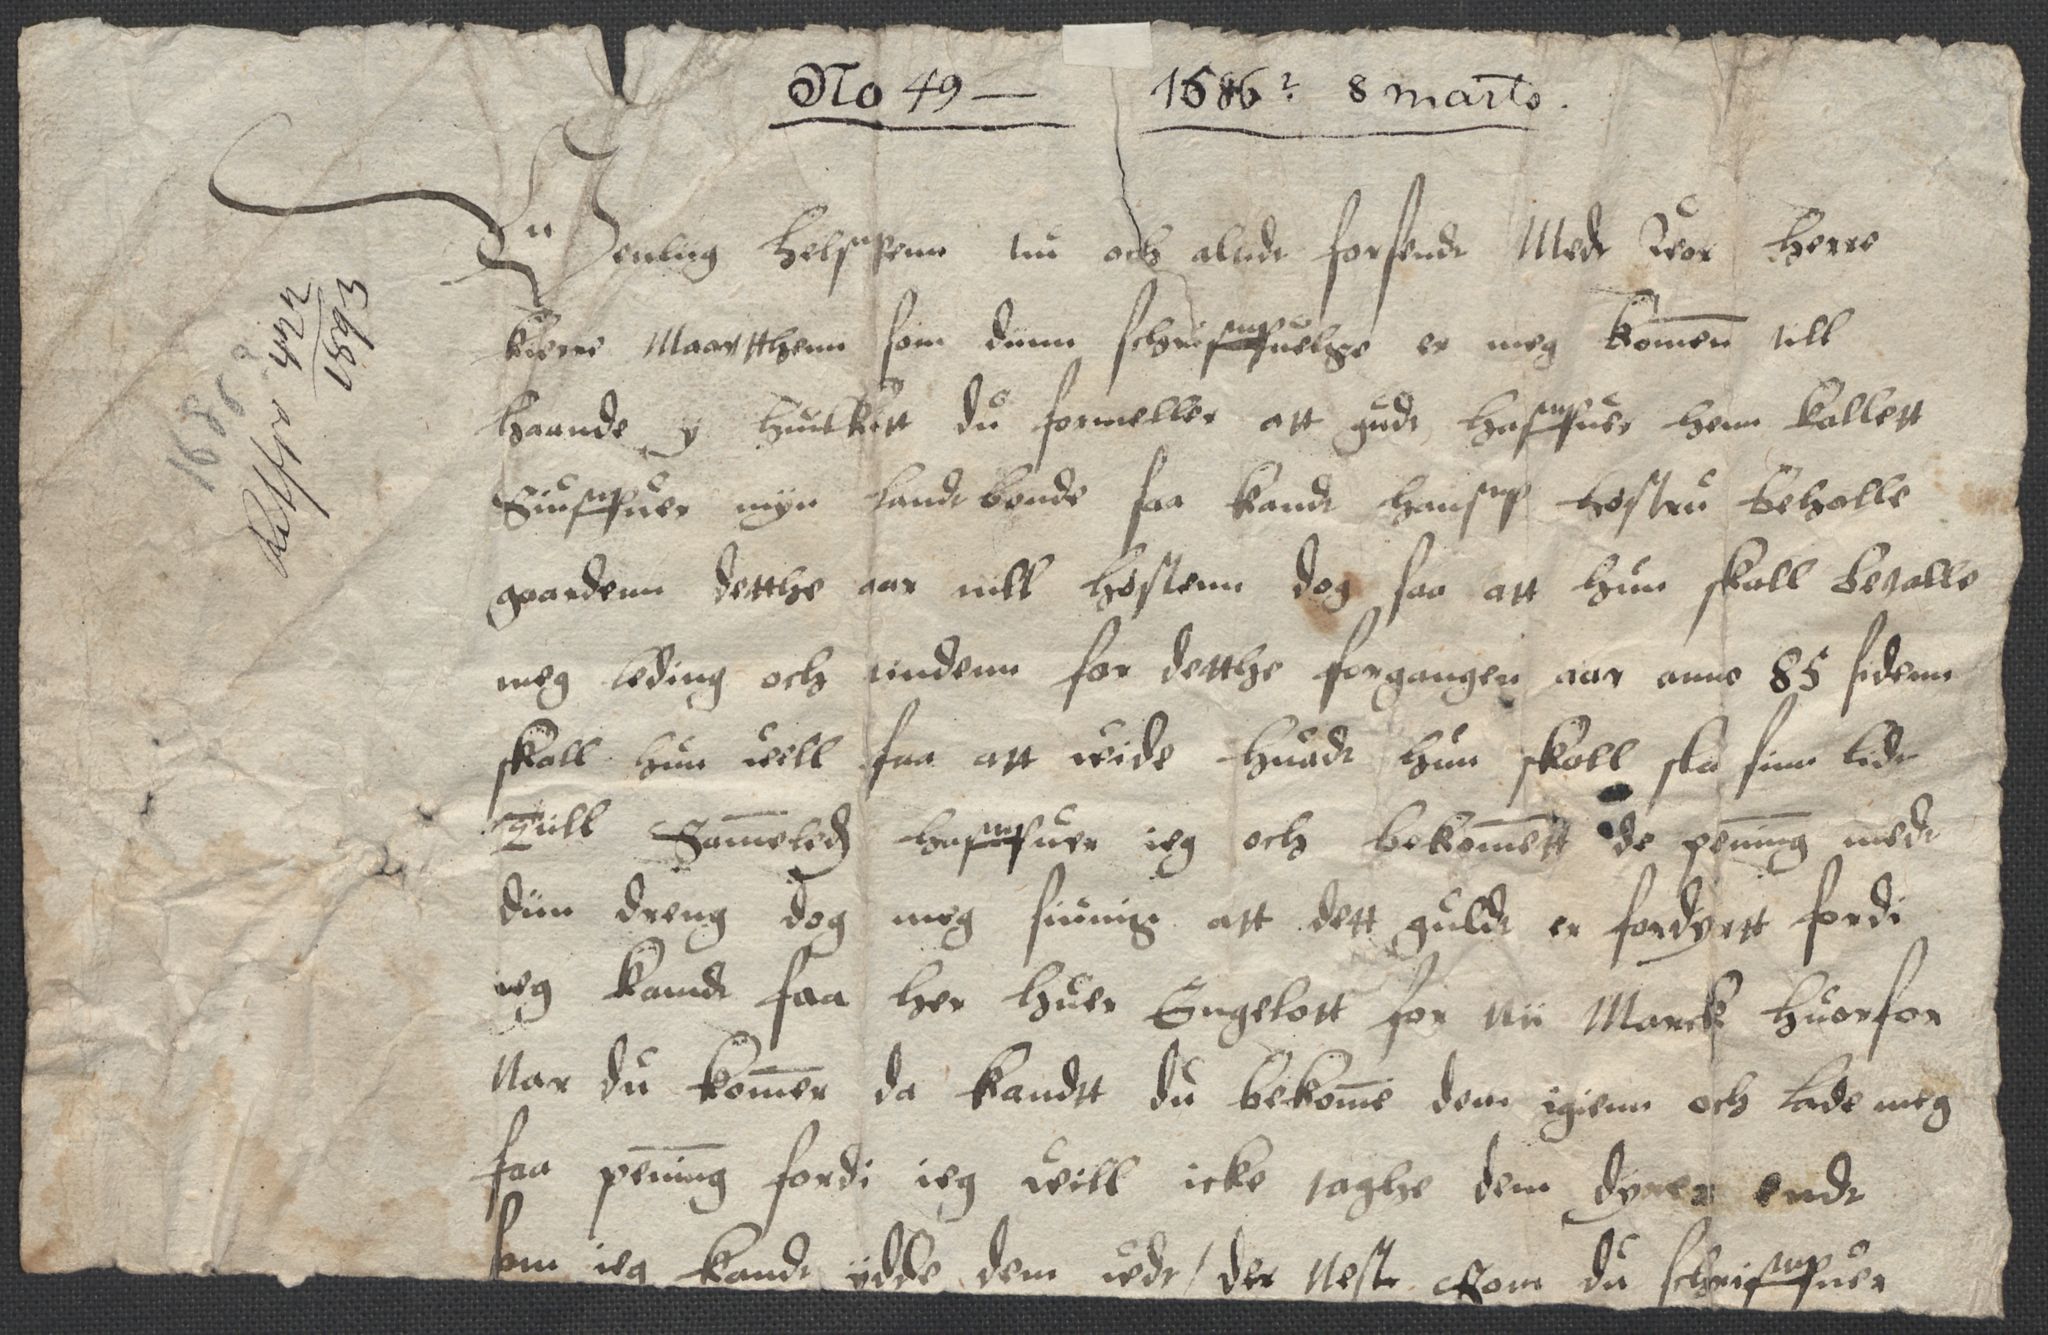 No 49 — 1686? 8 marto.
Venlig helssenn nu och altidt forsendt Medt Vor Herre
kierre Maartthenn som dinn schriffuelsse er meg komen till
haande y huilkitt du formeller att gudt haffuer henn kallett
Siuffuer myn landtbonde saa kandt hanss hostru beholle
gaardenn detthe aar till hostenn dog saa att hun skall betalle
meg leding och tindenn for detthe forgangen aar anno 85 sidenn
skall hun vell faa att vide huadt hun skall sla sinn lidt
Till Sameledß haffuer ieg och bekomett de pening medt
din dreng dog meg siunis att dett guldt er fordyrtt fordi
ieg kandt faa her huer Engelott for nii Marck huorfor
Nar du komer da kandtt du bekome dem igienn och lade meg
faa pening fordi ieg vill icke taghe dem dyrer endt
som ieg kandt ydde dem vdt / der Nest Som du schriffuer
1686?
422
1893